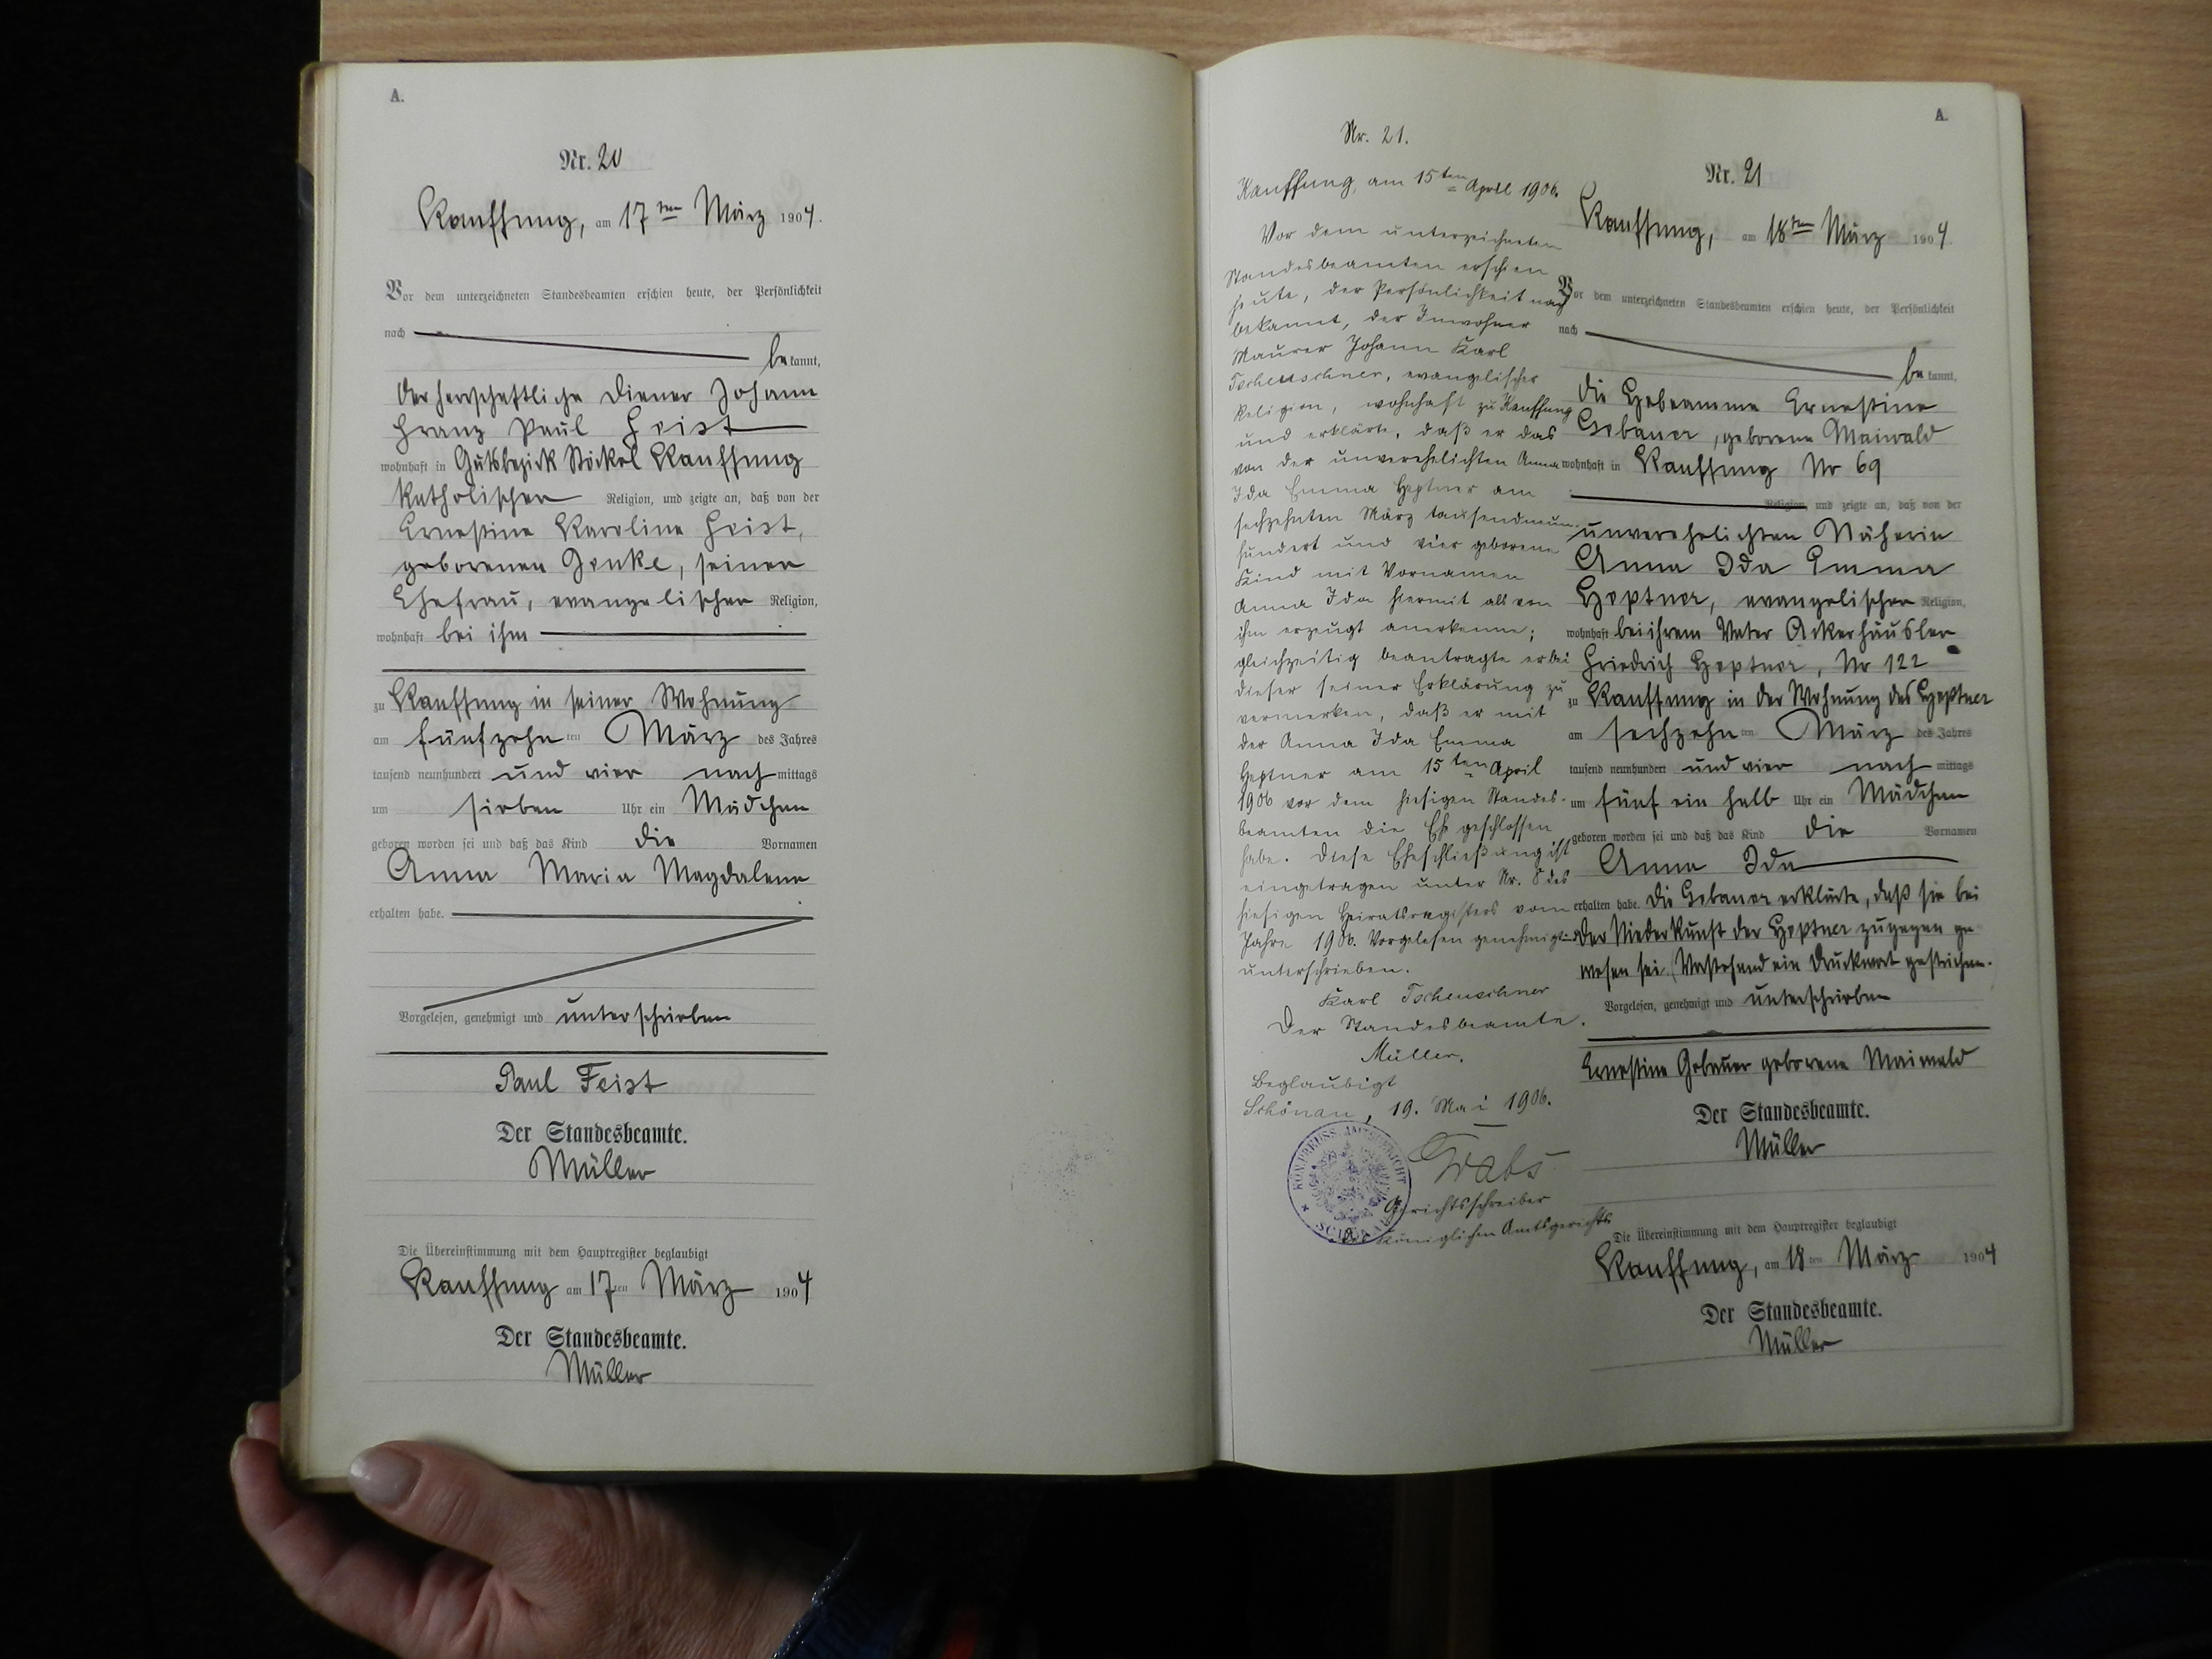 A.
Nr. 20
Kauffung, am 17ten März 1904.
Vor dem unterzeichneten Standesbeamten erschien heute, der Persönlichkeit
nach
bekannt,
der herrschaftliche Diener Johann
Franz Paul Feist
wohnhaft in Gutsbezirk Stöckel Kauffung
katholischer Religion, und zeigte an, daß von der
Ernestine Karoline Feist,
geborenen Jenke, seiner
Ehefrau, evangelischer Religion,
wohnhaft bei ihm
zu Kauffung in seiner Wohnung
am fünfzehnten März des Jahres
tausend neunhundert und vier nachmittags
um sieben Uhr ein Mädchen
geboren worden sei und daß das Kind die Vornamen
Anna Maria Magdalena
erhalten habe.
Vorgelesen, genehmigt und unterschrieben
Paul Feist
Der Standesbeamte.
Müller
Die Übereinstimmung mit dem Hauptregister beglaubigt
Kauffung am 17ten März 1904
Der Standesbeamte.
Müller
Nr. 21.
Kauffung, am 15ten April 1906.
Vor dem unterzeichneten
Standesbeamten erschien
heute, der Persönlichkeit nach
bekannt, der Inwohner
Maurer Johann Karl
Tscheuschner, evangelischer
Religion, wohnhaft zu Kauffung
und erklärte, daß er das
von der unverehelichten Anna
Ida Emma Heptner am
sechzehnten März tausendneun-
hundert und vier geborene
Kind mit Vornamen
Anna Ida hiermit als von
ihm erzeugt anerkenne;
gleichzeitig beantragte er bei
dieser seiner Erklärung zu
vermerken, daß er mit
der Anna Ida Emma
Heptner am 15ten April
1906 vor dem hiesigen Standes-
beamten die Ehe geschlossen
habe. Diese Eheschließung ist
eingetragen unter Nr. 8 des
hiesigen Heiratsregisters vom
Jahre 1906. Vorgelesen genehmigt und
unterschrieben.
Karl Tscheuschner
Der Standesbeamte.
Müller.
Beglaubigt
Schönau, 19. Mai 1906.
Grabs
Gerichtsschreiber
des Königlichen Amtsgerichts
KÖN. PREUSS. AMTSGERICHT
A.
Nr. 21
Kauffung, am 18ten März 1904.
Vor dem unterzeichneten Standesbeamten erschien heute, der Persönlichkeit
nach
bekannt,
die Hebeamme Ernestine
Gebauer, geborene Maiwald
wohnhaft in Kauffung Nr 69
Religion, und zeigte an, daß von der
unverehelichten Näherin
Anna Ida Emma
Heptner, evangelischer Religion,
wohnhaft bei ihrem Vater Ackerhäusler
Friedrich Heptner, Nr 122
zu Kauffung in der Wohnung des Heptner
am sechzehnten März des Jahres
tausend neunhundert und vier nachmittags
um fünf ein halb Uhr ein Mädchen
geboren worden sei und daß das Kind die Vornamen
Anna Ida
erhalten habe. Die Gebauer erklärte, daß sie bei
der Niederkunft der Heptner zugegen ge-
wesen sei. (Vorstehend ein Druckwort gestrichen.
Vorgelesen, genehmigt und unterschrieben
Ernestine Gebauer geborene Maiwald
Der Standesbeamte.
Müller
Die Übereinstimmung mit dem Hauptregister beglaubigt
Kauffung, am 18ten März 1904
Der Standesbeamte.
Müller